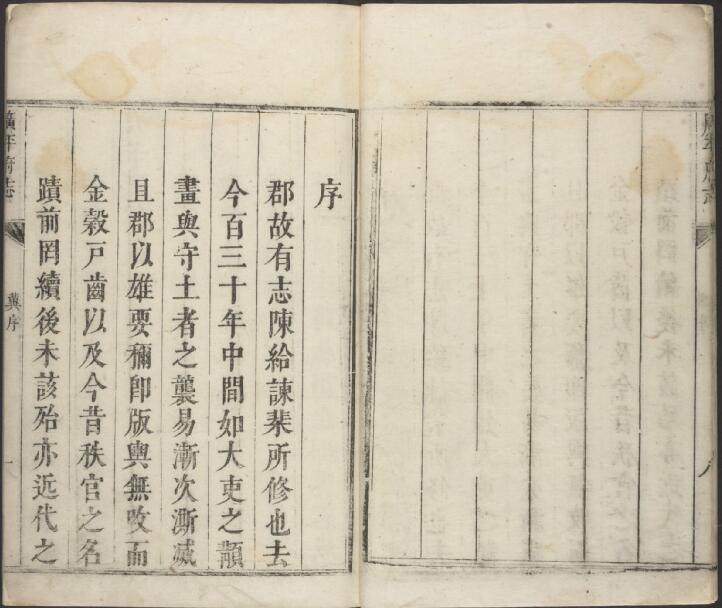 廣平府志
八
序
郡故有志陳給諫棐所修也去
今百三十年中間如大吏之顓
畫與守土者之襲易漸次澌滅
且郡以雄要穪卽版輿無攺而
金穀戸齒以及今昔秩官之名
蹟前罔續後未該殆亦近代之
廣平府志
冀序
一